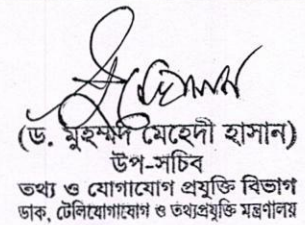 (ড. মুহম্মদ মেহেদী হাসান)
উপ-সচিব
তথ্য ও যোগাযোগ প্রযুক্তি বিভাগ
ডাক, টেলিযোগাযোগ ও তথ্যপ্রযুক্তি মন্ত্রণালয়